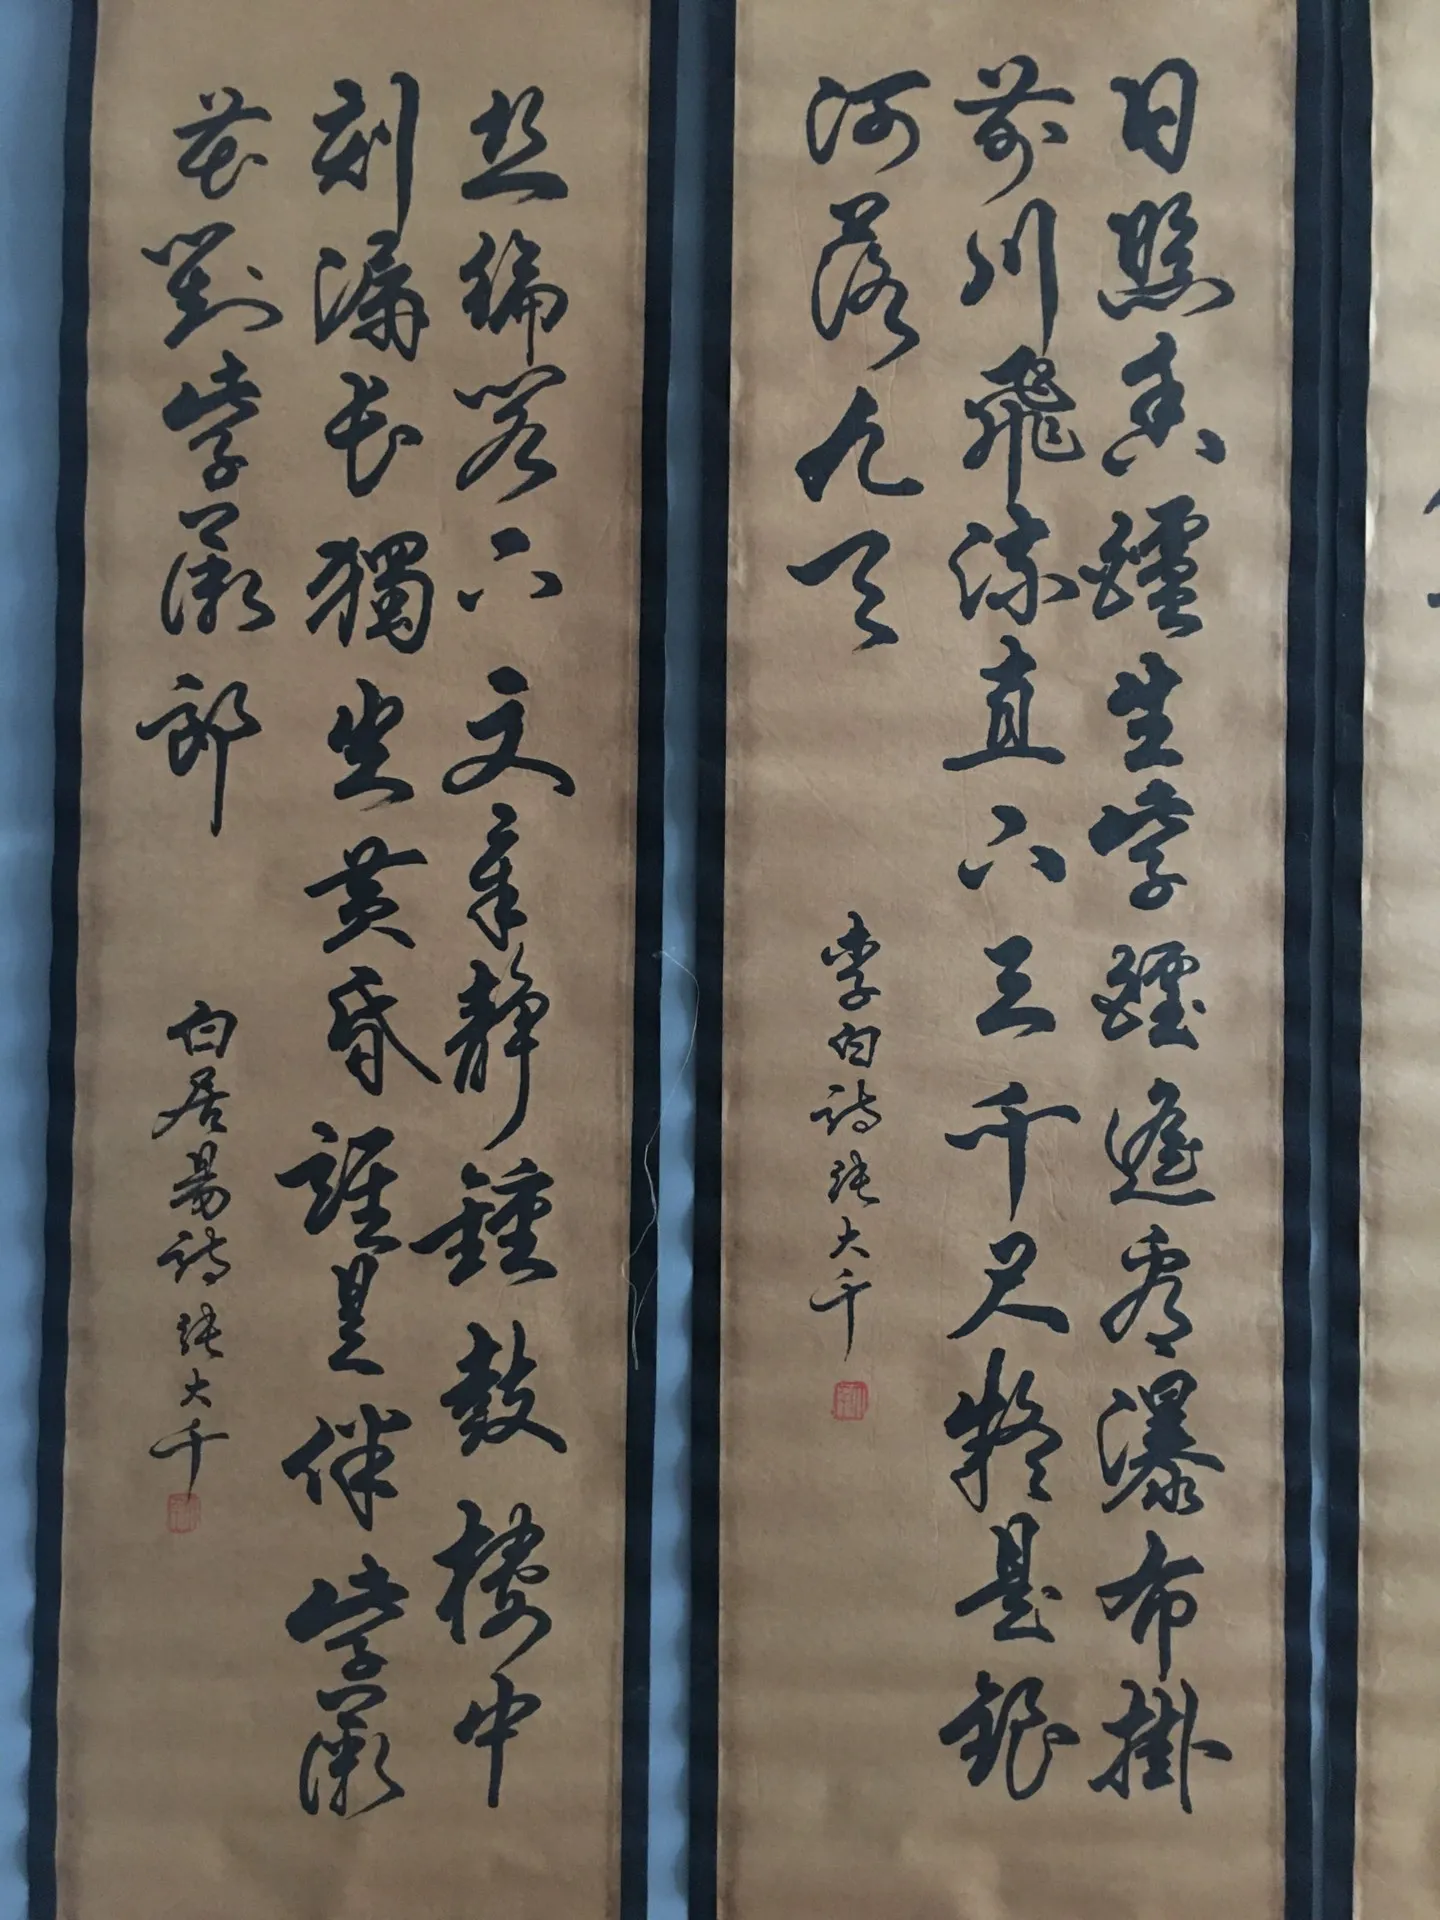 日照香爐生紫煙遙看瀑布掛
前川飛流直下三千尺疑是銀
河落九天
李白詩張大千
絲綸閣下文章靜鐘鼓樓中
刻漏長獨坐黃昏誰是伴紫薇
花對紫薇郎
白居易詩張大千